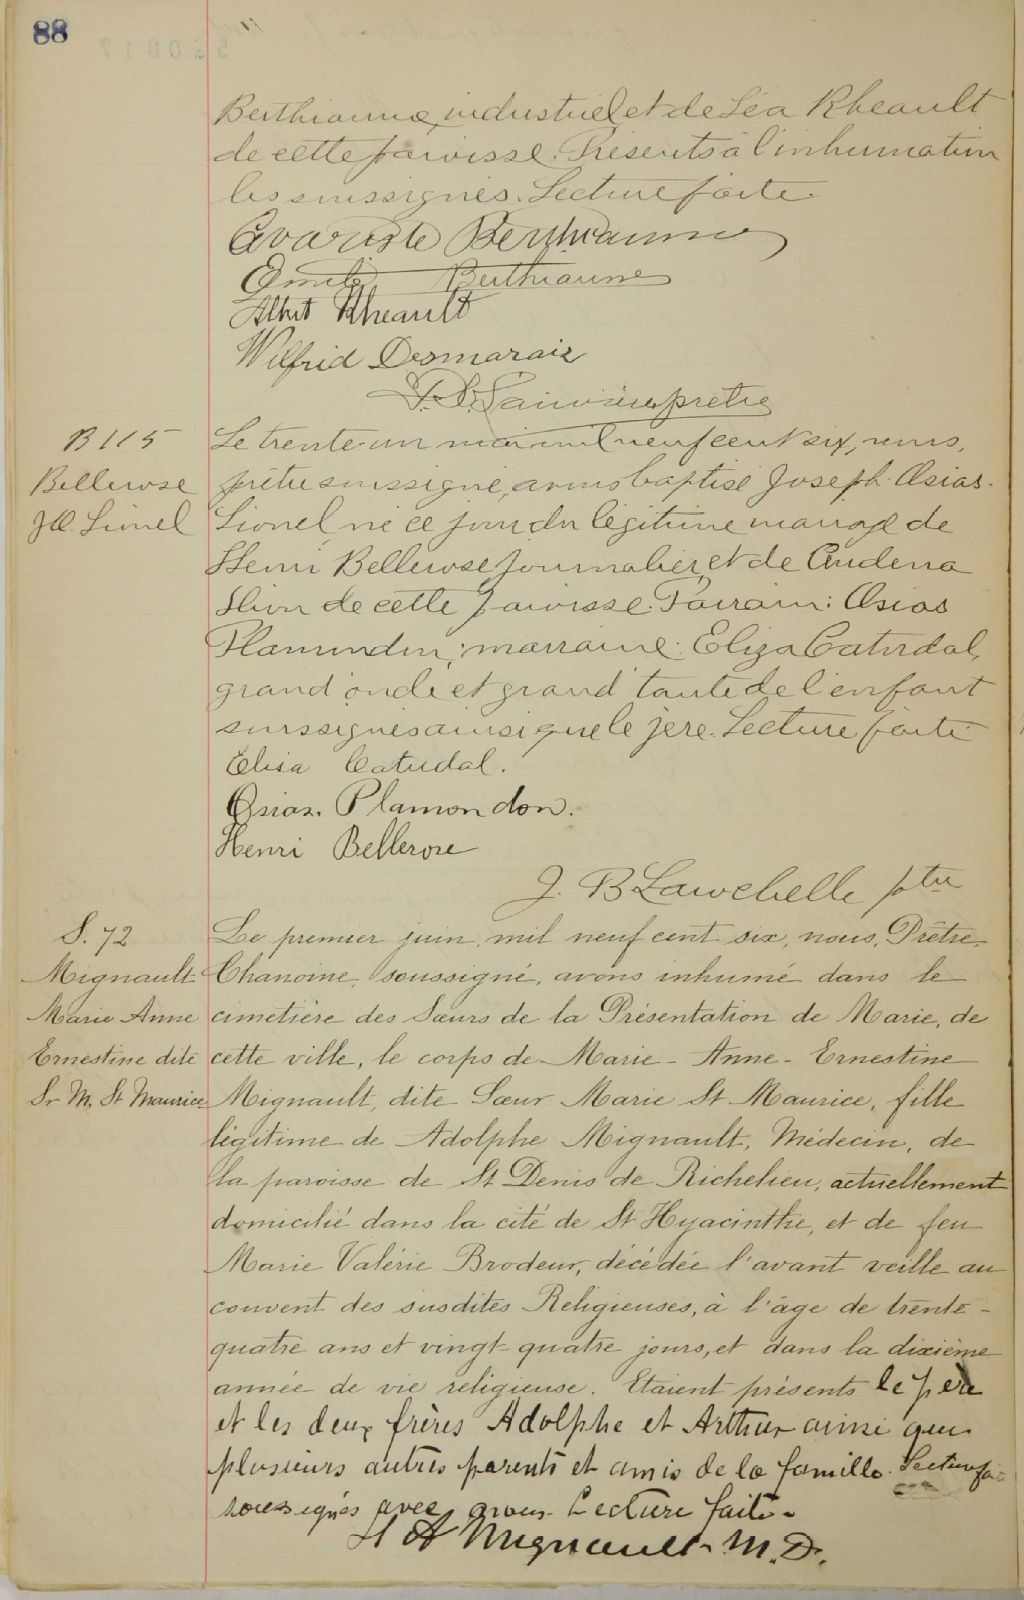 88
Berthiaume, industriel et de Léa Rheault
de cette paroisse. Présents à l'inhumation
les soussignés. Lecture faite.
Evariste Berthiaume
Emile Berthiaume
Albert Rheault
Wilfrid Desmarais
prêtre
B 115
Bellerose
J. O. Lionel
Le trente-un mai mil neuf cent six, nous,
prêtre soussigné, avons baptisé Joseph-Osias-
Lionel né ce jour du légitime mariage de
Henri Bellerose journalier, et de
de cette paroisse. Parrain: Osias
Plamondon; marraine: Eliza Catudal,
grand'oncle et grand'tante de l'enfant
soussignés ainsi que le père. Lecture faite
Elisa Catudal.
Osias. Plamondon.
Henri Bellerose
J. B Larochelle ptre
S. 72
Mignault
Marie Anne
Ernestine dite
Sr M. St Maurice
Le premier juin, mil neuf cent six, nous, Prêtre
Chanoine, soussigné, avons inhumé dans le
cimetière des Sœurs de la Présentation de Marie, de
cette ville, le corps de Marie-Anne-Ernestine
Mignault, dite Sœur Marie St Maurice, fille
légitime de Adolphe Mignault, Médecin, de
la paroisse de St Denis de Richelieu, actuellement
domicilié dans la cité de St Hyacinthe, et de feu
Marie Valérie Brodeur, décédée l'avant veille au
couvent des susdites Religieuses, à l'âge de trente-
quatre ans et vingt-quatre jours, et dans la dixième
année de vie religieuse. Etaient présents le père
et les deux frères Adolphe et Arthur ainsi que
plusieurs autres parents et amis de la famille.
soussignés avec nous. Lecture faite.
H A Mignault. M.D.